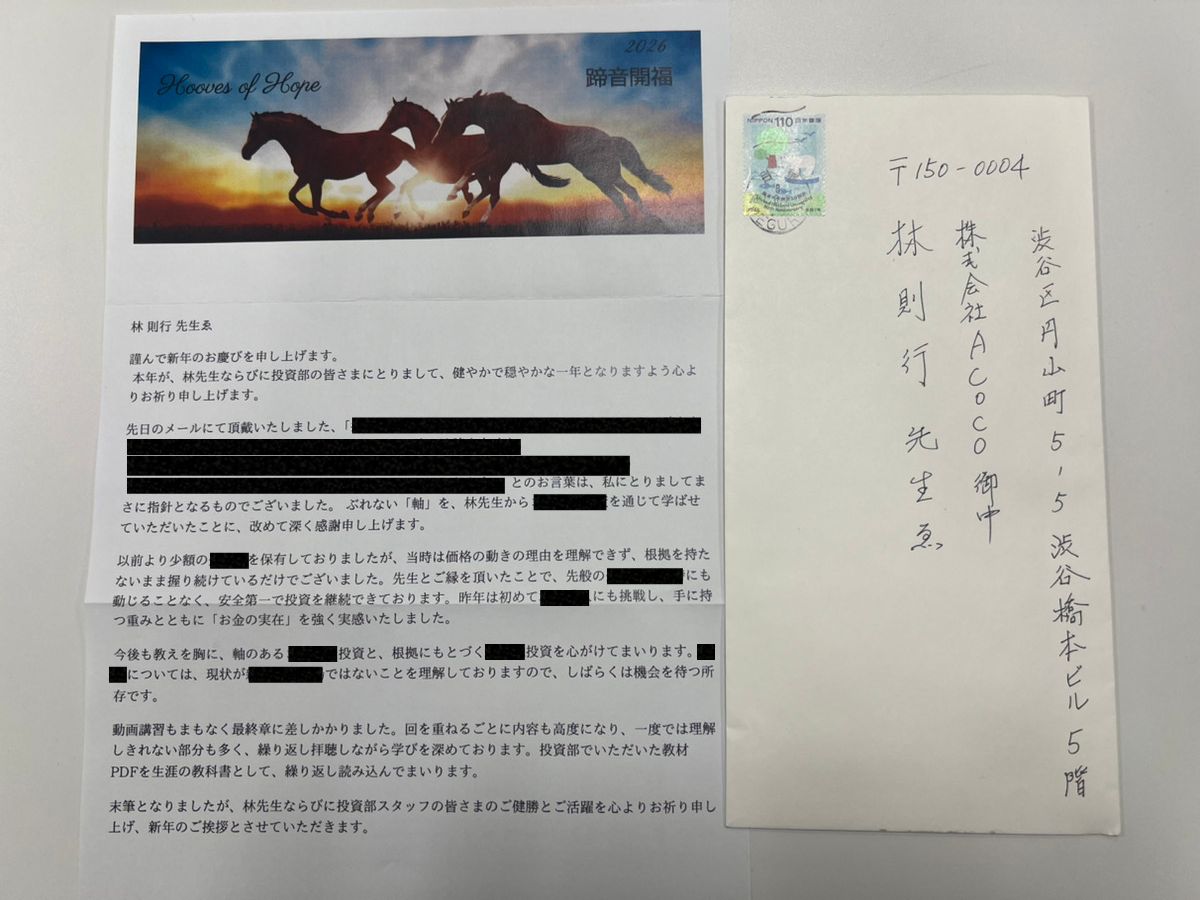 2026
Hooves of Hope
蹄音開福
林 則行 先生ゑ
謹んで新年のお慶びを申し上げます。
本年が、林先生ならびに投資部の皆さまにとりまして、健やかで穏やかな一年となりますよう心よ
りお祈り申し上げます。
先日のメールにて頂戴いたしました、「
とのお言葉は、私にとりましてま
さに指針となるものでございました。 ぶれない「軸」を、林先生から を通じて学ばせ
ていただいたことに、改めて深く感謝申し上げます。
以前より少額の を保有しておりましたが、当時は価格の動きの理由を理解できず、根拠を持た
ないまま握り続けているだけでございました。先生とご縁を頂いたことで、先般の にも
動じることなく、安全第一で投資を継続できております。昨年は初めて にも挑戦し、手に持
つ重みとともに「お金の実在」を強く実感いたしました。
今後も教えを胸に、軸のある 投資と、根拠にもとづく 投資を心がけてまいります。
については、現状が ではないことを理解しておりますので、しばらくは機会を待つ所
存です。
動画講習もまもなく最終章に差しかかりました。回を重ねるごとに内容も高度になり、一度では理解
しきれない部分も多く、繰り返し拝聴しながら学びを深めております。投資部でいただいた教材
PDFを生涯の教科書として、繰り返し読み込んでまいります。
末筆となりましたが、林先生ならびに投資部スタッフの皆さまのご健勝とご活躍を心よりお祈り申し
上げ、新年のご挨拶とさせていただきます。
NIPPON 110 日本郵便
〒150-0004
渋谷区円山町5-5 渋谷橋本ビル5階
株式会社ACOCO御中
林則行先生ゑ